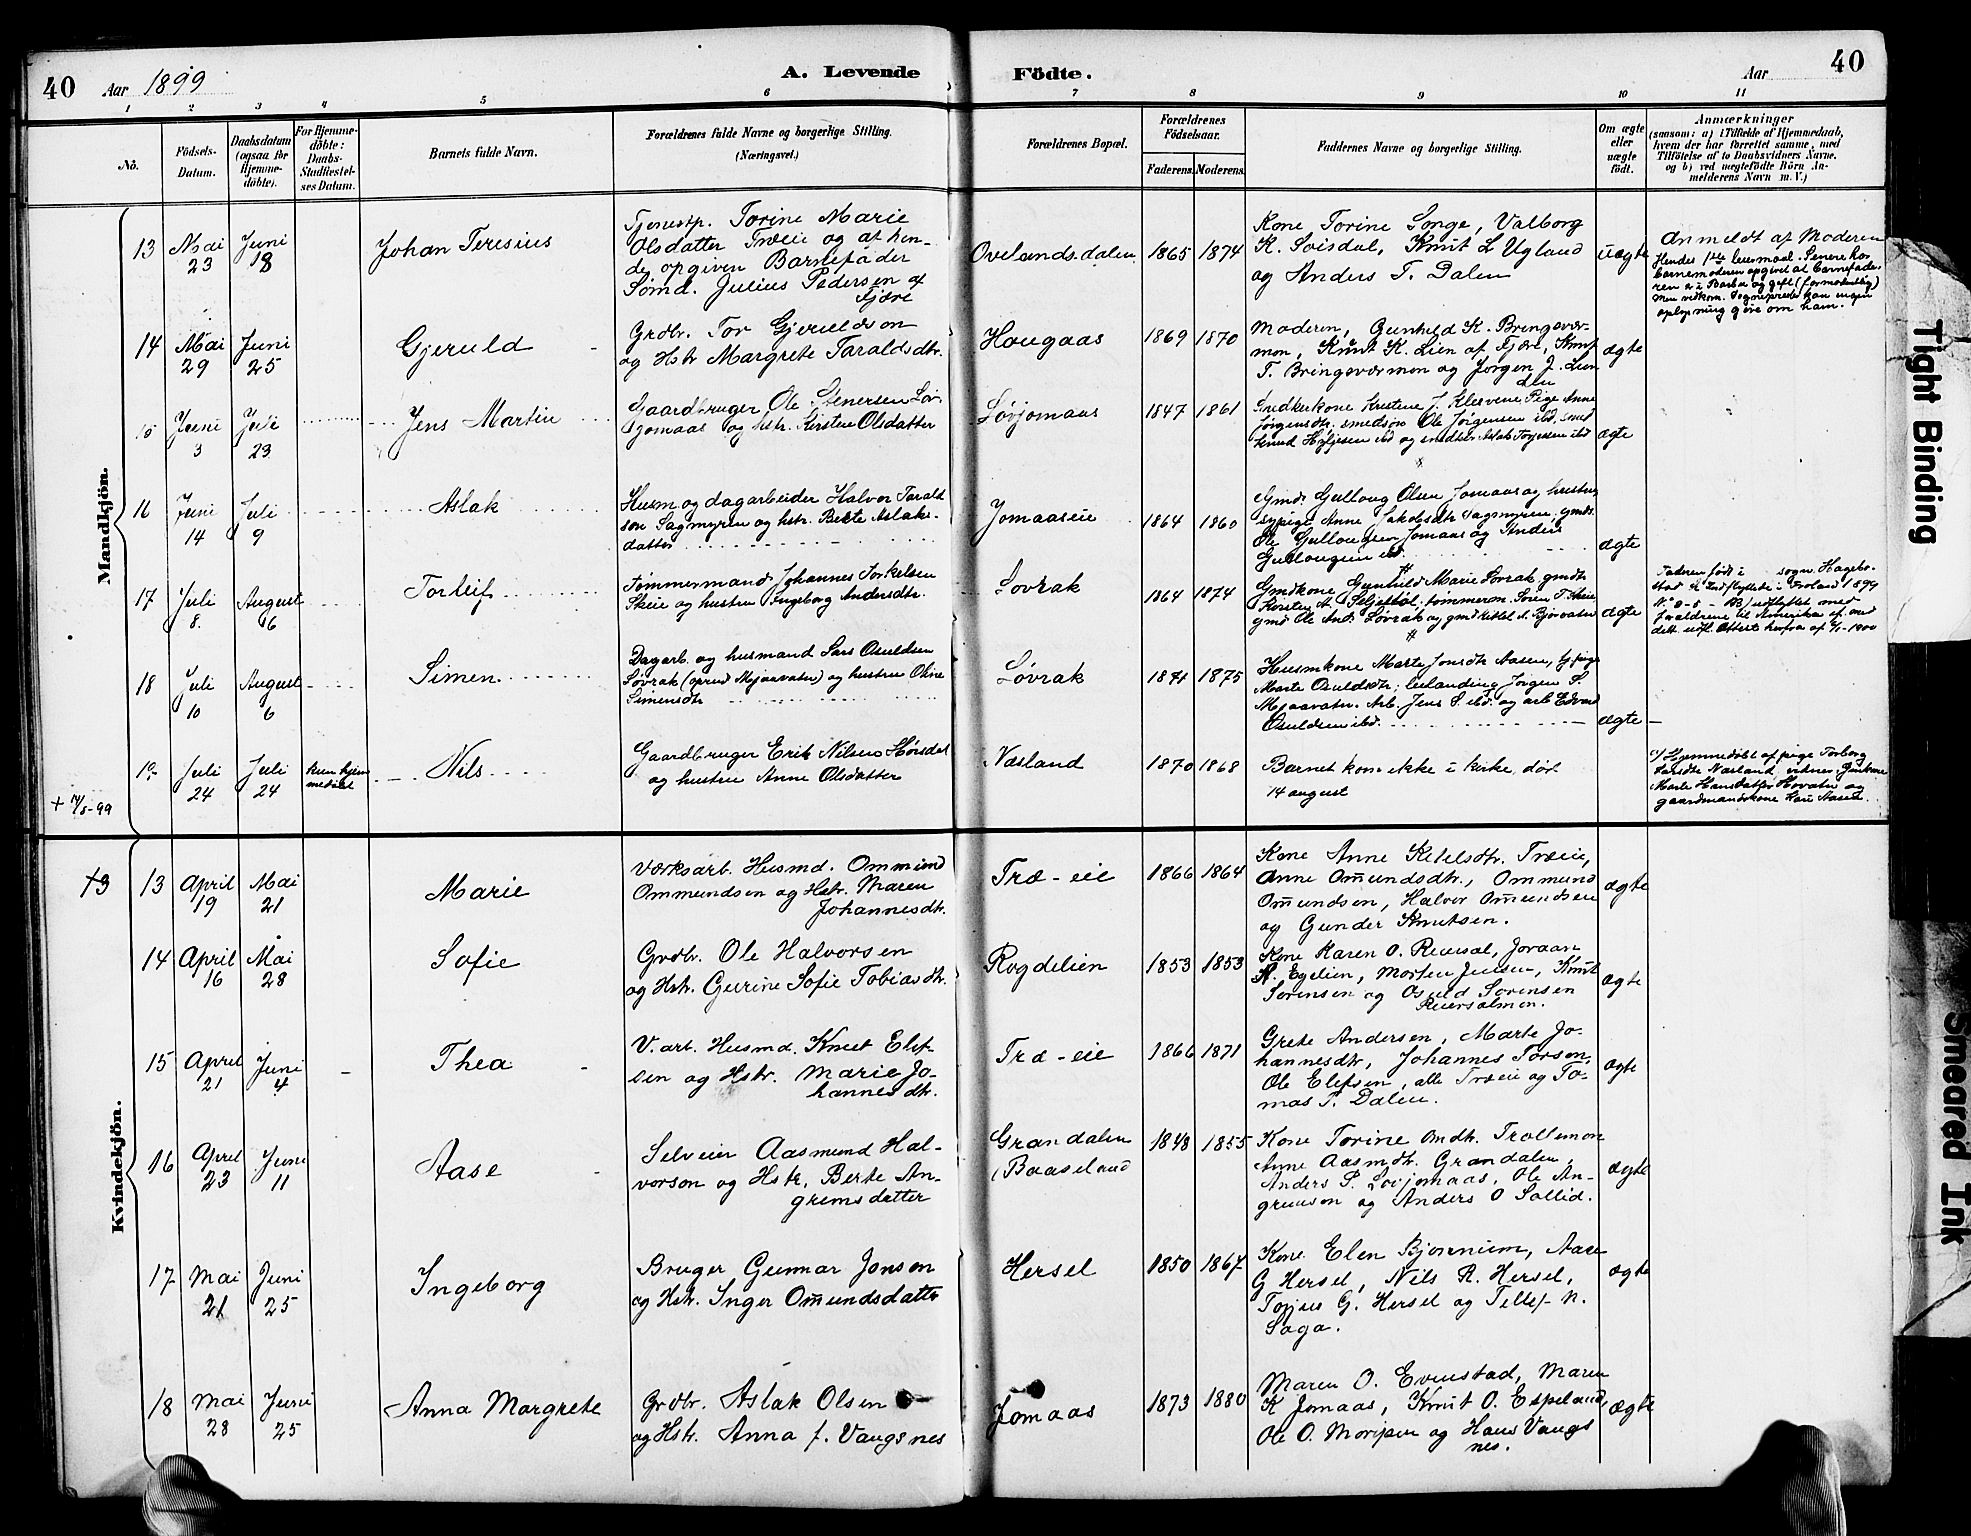 40 Aar 1899 A. Levende Födte. Aar 40
1 2 3 4 5 6 7 8 9 10 11
No.
Födsels-
Datum.
Daabsdatum
(ogsaa for
Hjemme-
döbte).
For Hjemme-
döbte:
Daabs-
Stadfæstel-
ses Datum.
Barnets fulde Navn.
Forældrenes fulde Navne og borgerlige Stilling.
(Næringsvei.)
Forældrenes Bopæl.
Forældrenes
Födselsaar.
Faderens. Moderens.
Faddernes Navne og borgerlige Stilling.
Om ægte
eller
uægte
födt.
Anmærkninger
(saasom: a) i Tilfælde af Hjemmedaab,
hvem der har forrettet samme, med
Tilföielse af to Daabsvidners Navne.
og b) ved uægtefödte Börn An-
melderens Navn m. V.)
Mandkjön.
13 Mai
23
Juni
18
Johan Teresius
Tjenestp. Torine Marie
Olsdatter Træeie og af hen-
de opgiven Barnefader
Sømd. Julius Pedersen af
Fjære
Ovelandsdalen 1865 1874
Kone Torine Songe, Valborg
K. Soisdal, Knut L Ugland
og Anders T. Dalen
uægte
Anmeldt af Moderen
Hendes 1ste leiermaal. Senere har
barnemoderen opgivet at barnefade-
ren er i Barbu og gift (formodentlig)
Men vedkom. Sogneprest kan ingen
oplysning give om ham.
14 Mai
29
Juni
25
Gjeruld
Grdbr. Tor Gjeruldson
og Hstr Margrete Taraldsdtr.
Hougaas 1869 1870
Moderen, Gunhild K. Bringsvær-
mon, Knut K. Lien af Fjære, Knut
T. Bringsværmon og Jørgen J. Lien
ægte
15 Juni
3
Juli
23
Jens Martin
Gaardbruger Ole Stenersen Løv-
jomaas og hstr. Kirsten Olsdatter
Løvjomaas 1847 1861
Snedkerkone Kristine J. Klesvene Pige Anne
Jørgensdtr, smedsøn Ole Jørgensen ibd, smed
ægte
16 Juni
14
Juli
9
Aslak
Husm og dagarbeider Halvor Tarald-
søn Sagmyren og hstr. Berte Aslaks-
datter
Jomaaseie 1864 1860
Gmd Gulloug Olsen Jomaas og hustru
sypige Anne Jakobsdtr Sagmyren, gmd.
Ole Gullougsen Jomaas og Anders
Gullougsen ibd.
ægte
17 Juli
8
August
6
Torleif
Tømmermand Johannes Torkelsen
Skeie og hustru Ingeborg Andersdtr.
Løvrak 1864 1874
Gmdkone Gunhild Marie Løvrak, gmdtr
Kirsten A. Seljestøl, tømmerm. Søren T. Skeie
gmd Ole Andr. Løvrak og gmd Kittel A. Bjorvatn
ægte
Faderen født i sogn Hægebo-
stad er indflyttet i Froland 1899
No 8-5 - B) udflyttet med
forældrene til Amerika ef. med
delt udfl. Attest herfra af 4/1-1900
18 Juli
10
August
6
Simen
Dagarb. og husmand Lars Osuldsen
Løvrak (oprind Mjaavatn) og hustru Oline
Simensdtr
Løvrak 1871 1875
Husmkone Marte Jonsdtr Aasen, tj.pige
Marte Osuldsdtr; leilænding Jørgen S.
Mjaavatn. Arb. Jens S. ibd. og arb Edvard
Osuldsen ibd.
ægte
19 Juli
24
Juli
24
Kun hjem
medøbt
+ 14/8-99
Nils
Gaardbruger Erik Nilsen Hørsdal
og hustru Anne Olsdatter
Næsland 1870 1868
Barnet kom ikke i kirke, død
14 august
a) Hjemmedøbt af pige Torborg
Larsdtr Næsland vidner
Marte Hansdatter Hovatn og
gaardmandskone Kari Aasen.
Kvindekjön.
+3 13 April
19
Mai
21
Marie
Værksarb. Husmd. Ommund
Ommundsen og Hstr. Maren
Johannesdtr.
Træ-eie 1866 1864
Kone Anne Ketelsdtr. Træeie,
Anne Om̄undsdtr., Ommund
Om̄undsen, Halvor Om̄undsen
og Gunder Knutsen.
ægte
14 April
16
Mai
28
Sofie
Grdbr. Ole Halvorsen
og Hstr. Gurine Sofie Tobiasdtr.
Rygdelien 1853 1853
Kone Karen O. Reiersøl, Joraan
A. Egelien, Morten Jensen, Knut
Sørensen og Osuld Sørensen
Reiersølmon.
ægte
15 April
21
Juni
4
Thea
V. arb. Husmd. Knut Elef-
sen og Hstr. Marie Jo-
hannesdtr.
Træ-eie 1866 1871
Grete Andersen, Marte Jo-
hannesdtr, Johannes Torson,
Ole Elefsen, alle Træeie og To-
mas T. Dalen.
ægte
16 April
23
Juni
11
Aase
Selveier Aasmund Hal-
vorson og Hstr. Berte An-
gremsdatter
Grandalen
(Baaseland 1848 1855
Kone Torine Omdtr. Trollemon
Anne Aasmdtr. Grandalen,
Anders P. Lovjomaas, Ole An-
grimson og Anders O Sollid.
ægte
17 Mai
21
Juni
25
Ingeborg
Bruger Gunnar Jonson
og Hstr. Inger Om̄undsdatte
Hersel 1850 1867
Kone Elen Bjørnum, Aase
G Hersel, Nils R. Hersel,
Tarjus G. Hersel og Tellef N.
Saga.
ægte
18 Mai
28
Juni
25
Anna Margrete
Grdbr. Aslak Olsen
og Hstr. Anna f. Vaagsnes
Jomaas 1873 1880
Maren O. Evenstad, Maren
K Jomaas, Knut O. Espeland,
Ole O. Moripen og Hans Vaags
nes.
ægte
Tight Binding
Smeared Ink